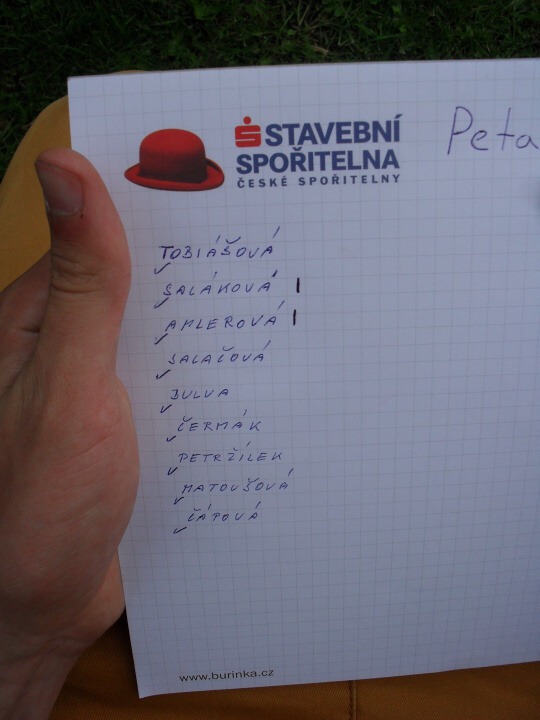 STAVEBNÍ
SPOŘITELNA
ČESKÉ SPOŘITELNY
Peta
TOBIÁŠOVÁ
SALÁKOVÁ I
AMLEROVÁ I
SALAČOVÁ
BULVA
ČERMÁK
PETRŽÍLEK
MATOUŠOVÁ
ČÁPOVÁ
www.burinka.cz